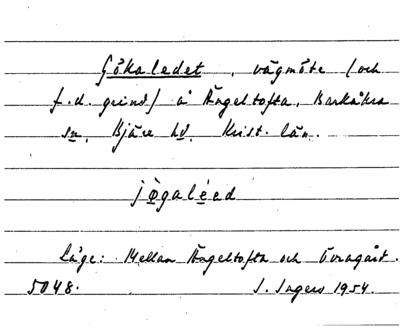 Gökaledet, vägmöte (och
f.d. grind) å Ängeltofta, Barkåkra
sn, Bjäre hd. Krist. län.
jø̀galéed
Läge: Mellan Ängeltofta och Övragård.
5048. J. Ingers 1954.